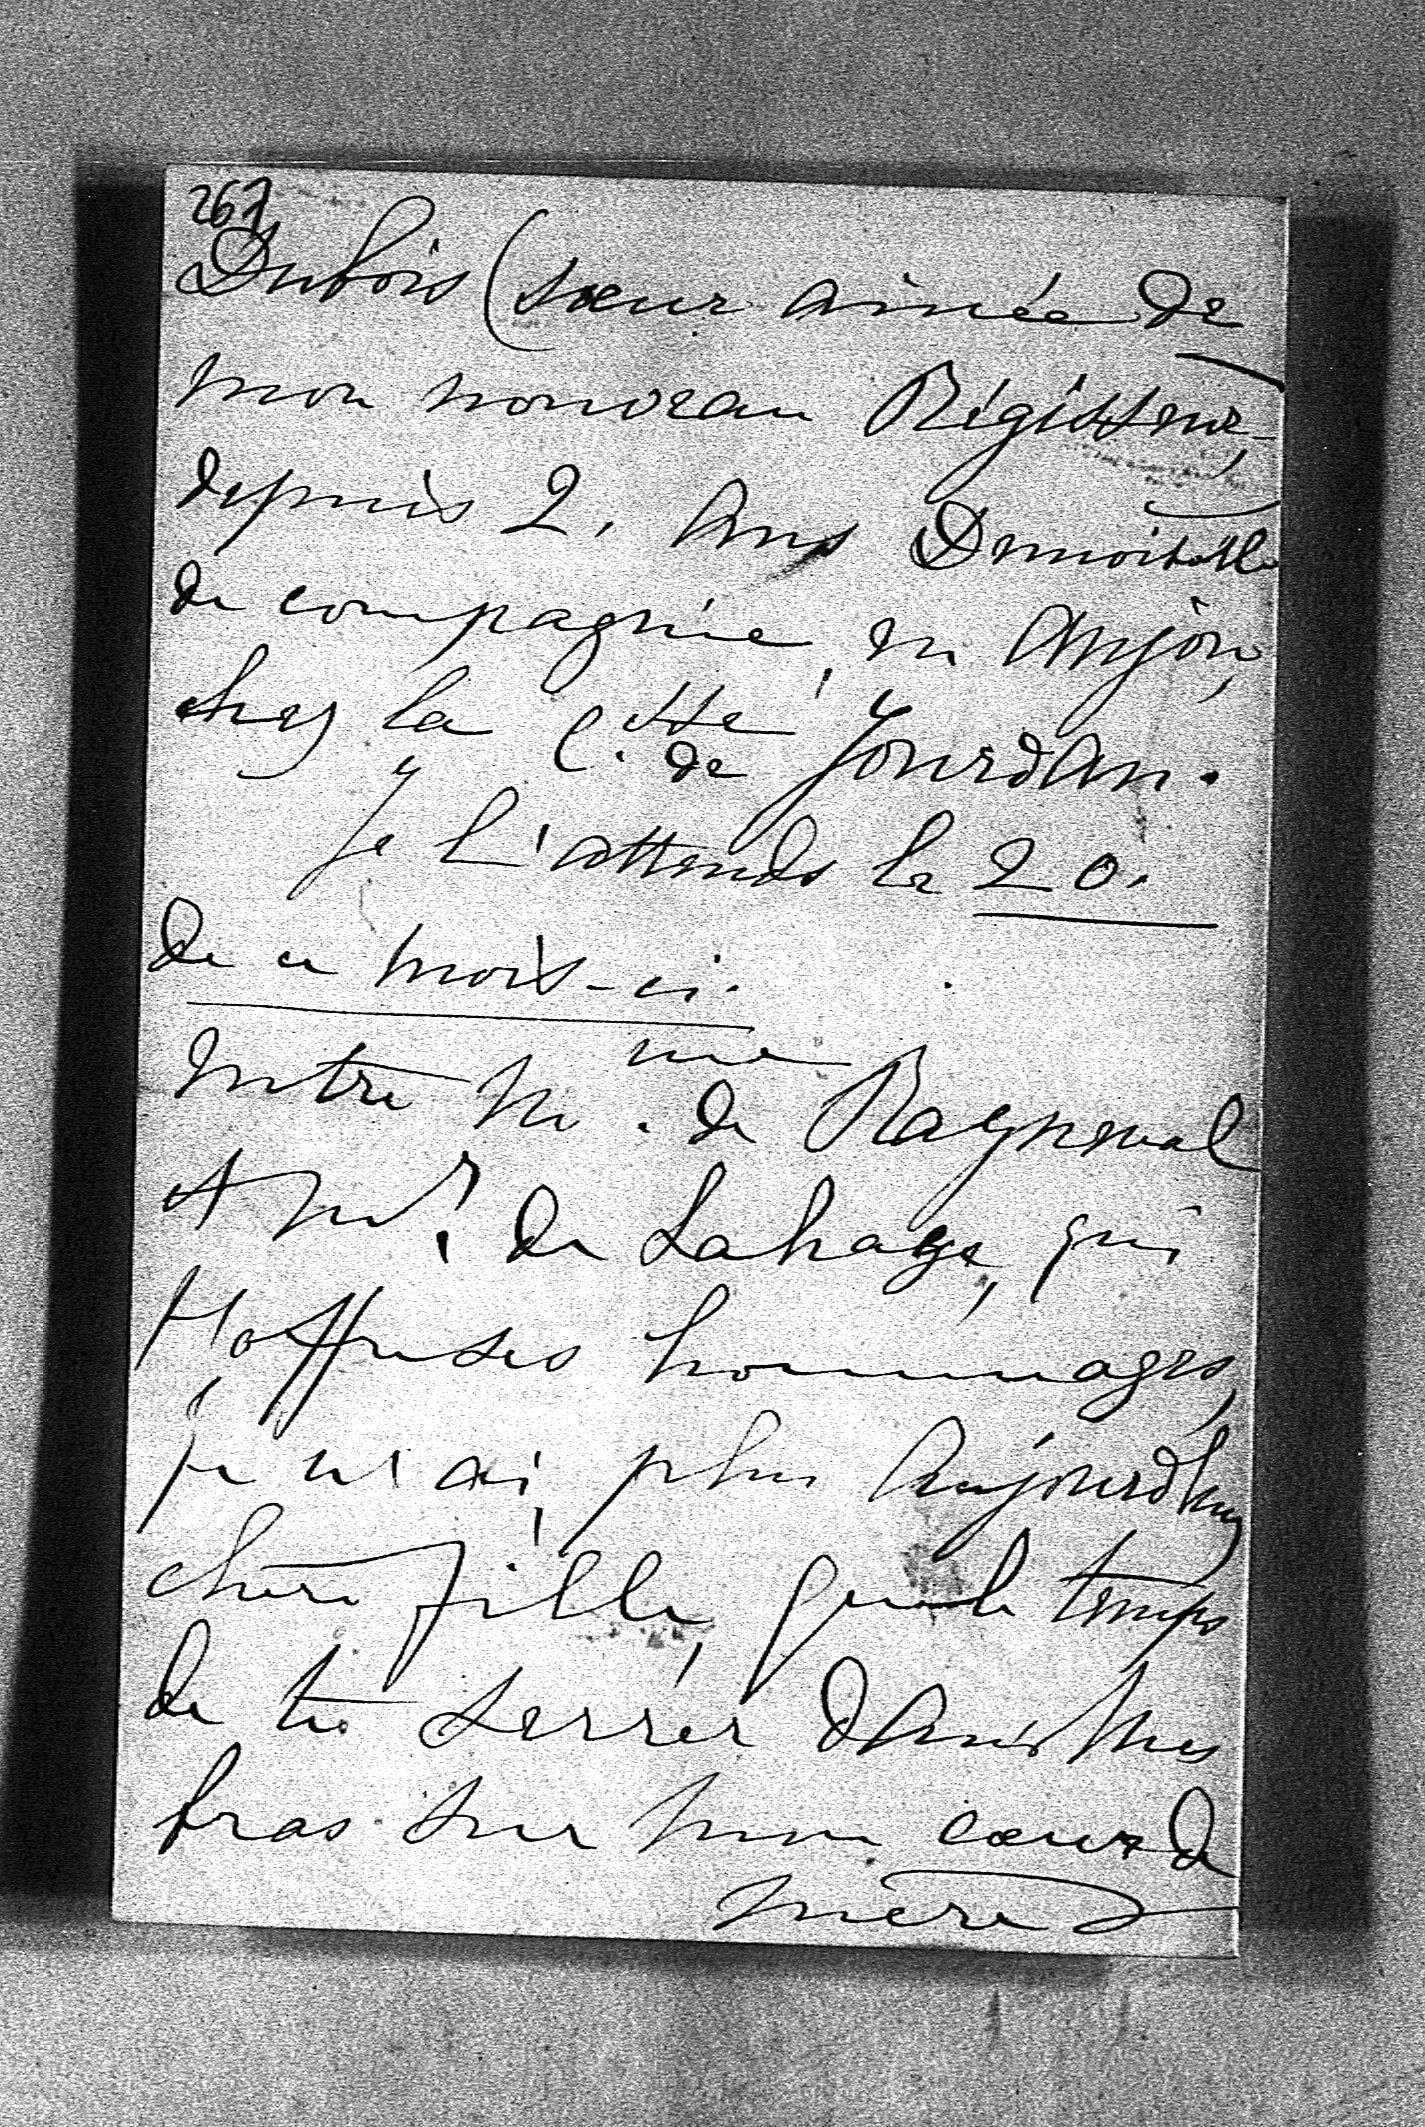 267
Dubois (sœur ainée de
mon nouveau Régisseur,
depuis 2. ans Demoiselle
de compagnie, en Anjou,
chez la C.tsse de Jourdan.
Je l'attends le 20.
de ce mois-ci.
Mme. de Rayneval
et Mr. de Lahaye, qui
t'offre ses hommages,
je n'ai, plus aujourd'hui
chère fille, que le temps
de te serrer dans mes
bras sur mon cœur de
mère